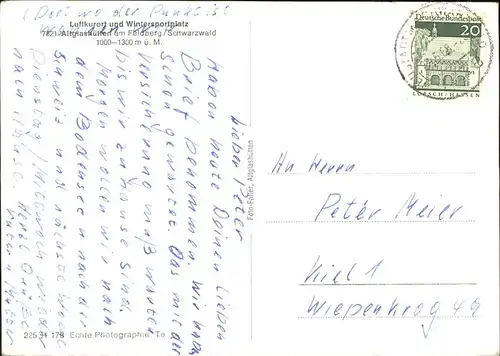 (Dort wo der Punkt ist
Luftkurort und Wintersportplatz
7821 Altglashütten am Feldberg/Schwarzwald
1000–1300 m ü. M.
Lieber Peter
Haben heute Deinen lieben
Brief bekommen. Wir haben
schon gewartet. Das mit der
Versicherung muß warten
bis wir zuhause sind.
Morgen wollen wir nach
dem Bodensee und nach der
Schweiz und nächste Woche
Dienstag/Mittwoch wieder
nach Hause. Herzl. Grüße
225 31 179 Echte Photographie
Foto-Faller, Altglashütten
Deutsche Bundespost
20
LORSCH/HESSEN
An Herrn
Peter Meier
Kiel 1
Wiepenkrog 49